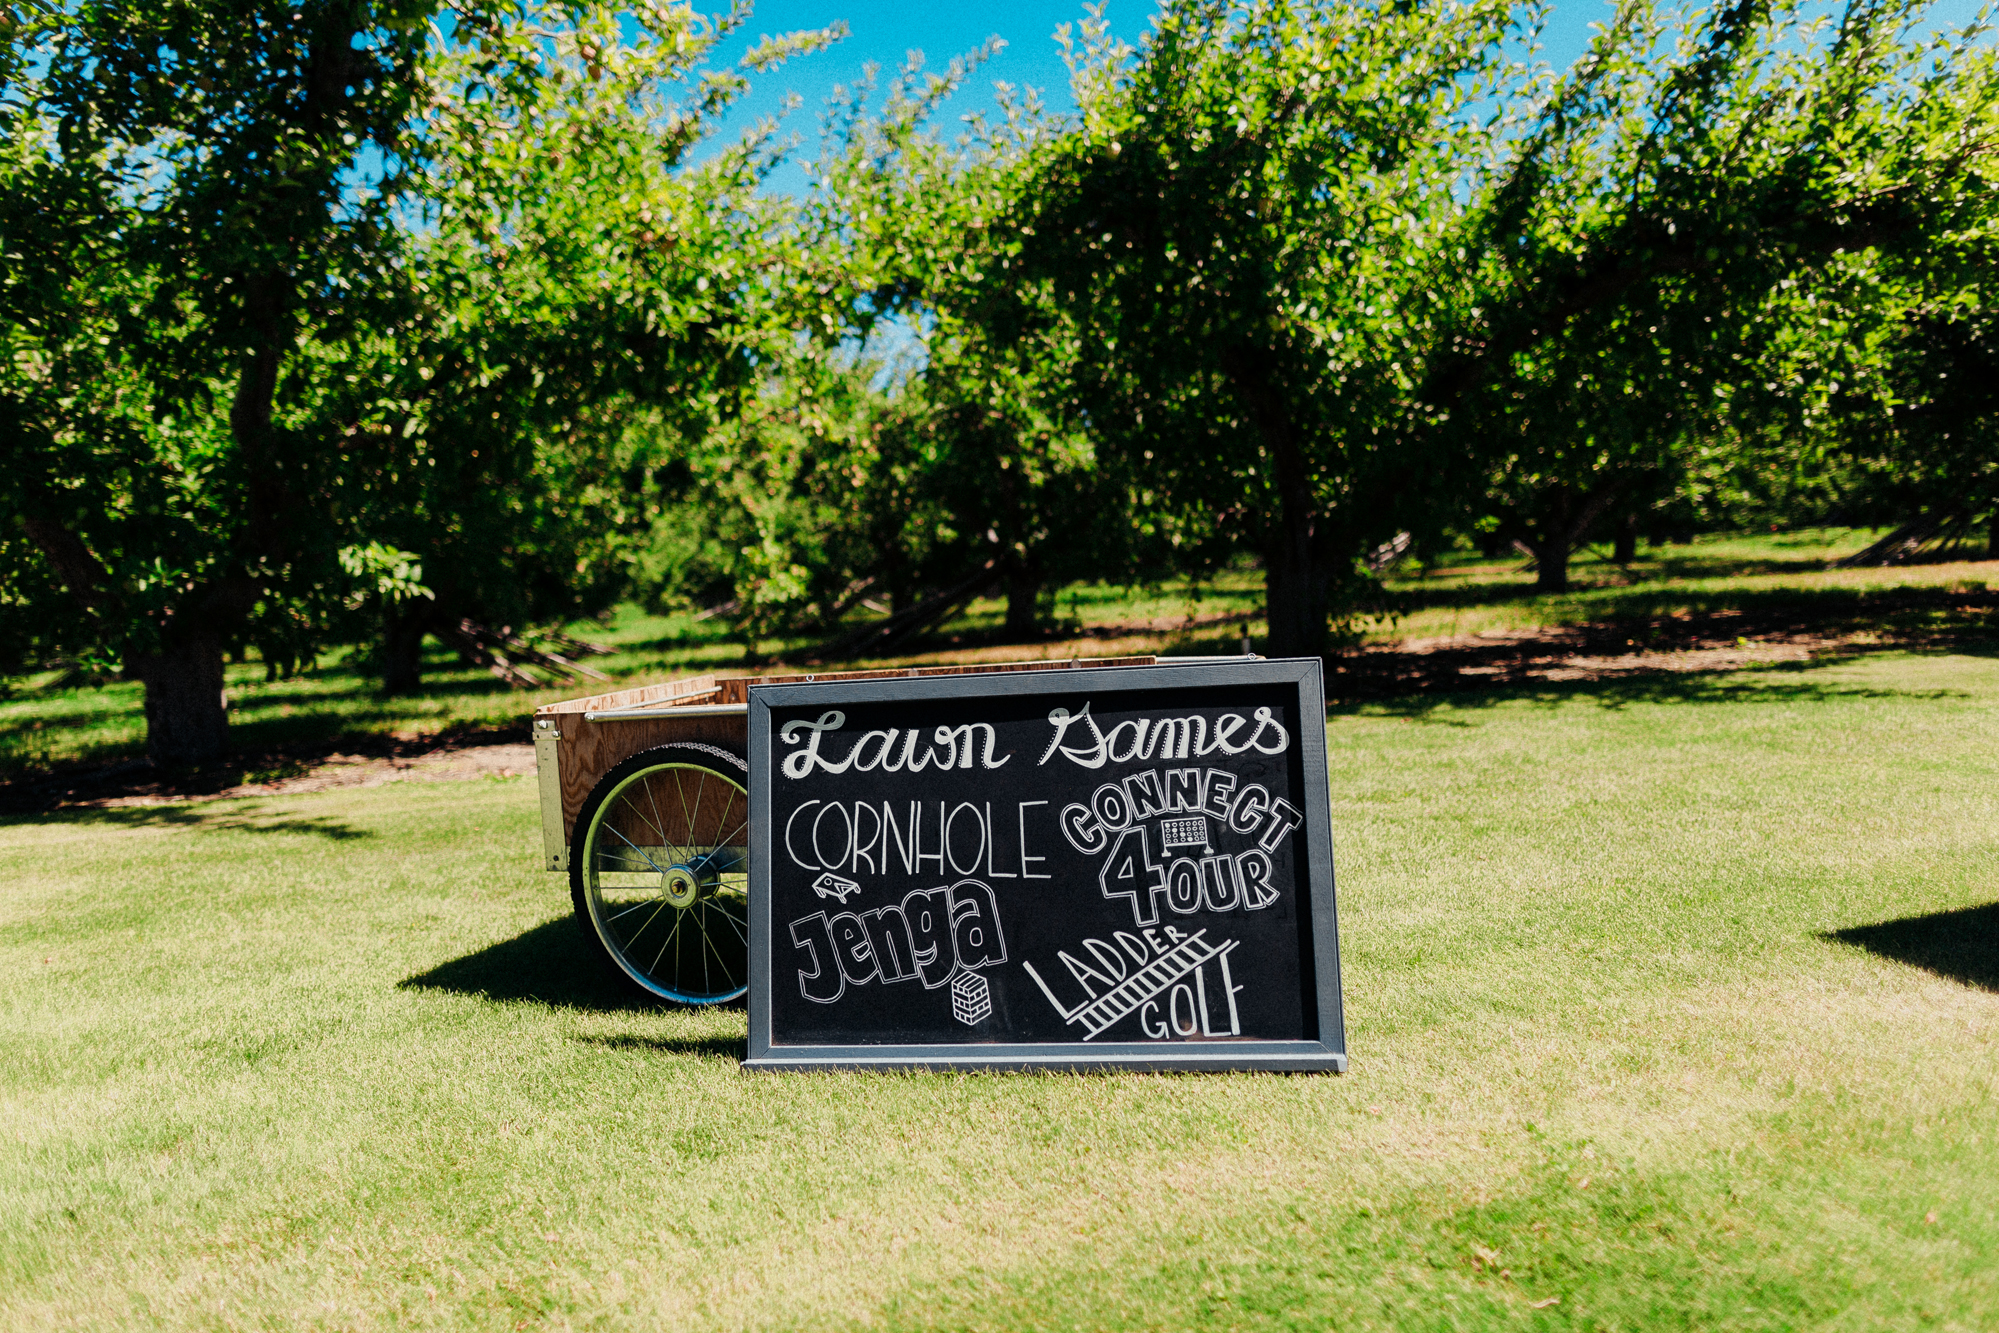 Lawn Games
CORNHOLE
CONNECT
4OUR
Jenga
LADDER
GOLF